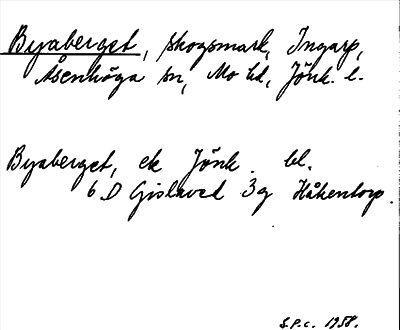 Byaberget, skogsmark, Ingarp,
Åsenhöga sn, Mo hd, Jönk. l.
Byaberget, ek Jönk. bl.
6 D Gislaved 3g Håkentorp.
S.P.c. 1958.